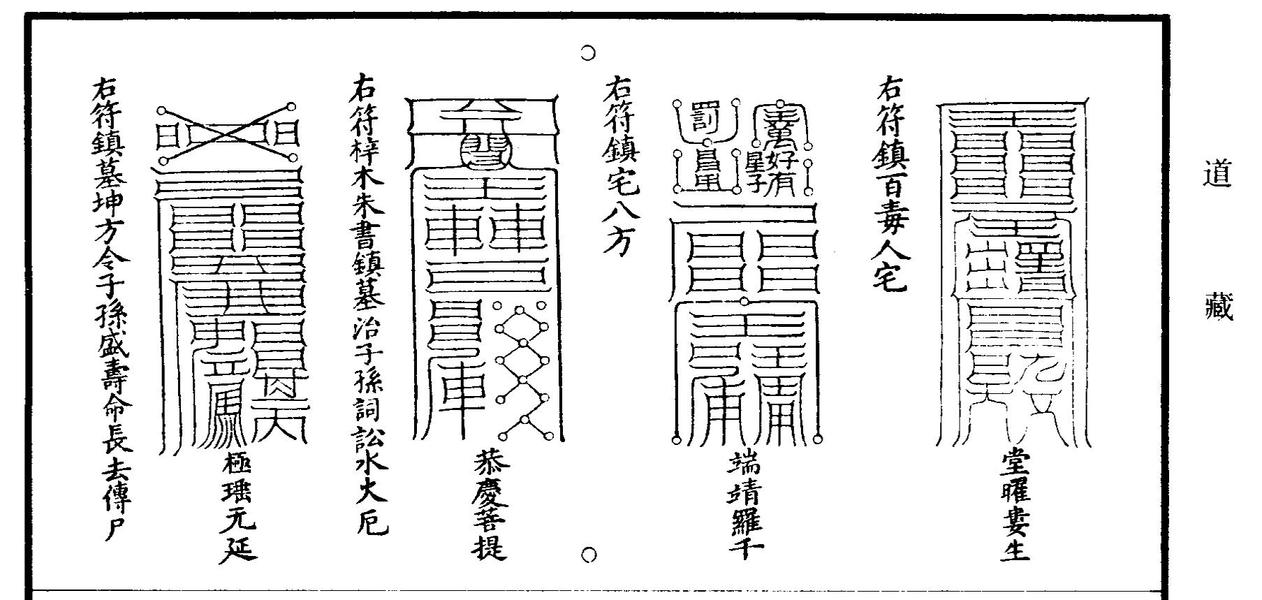 道藏
堂曜婁生
右符鎮百毒人宅
端靖羅千
右符鎮宅八方
恭慶菩提
右符梓木朱書鎮墓治子孫詞訟水火厄
極瑶无延
右符鎮墓坤方令子孫盛壽命長去傳尸